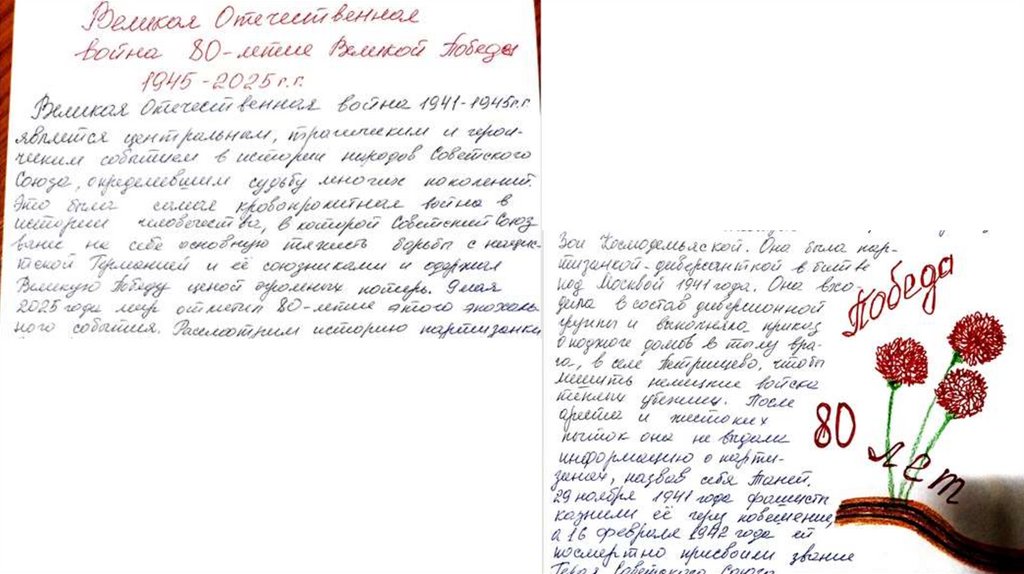 Великая Отечественная
война 80-летие Великой Победы
1945-2025г.г.
Великая Отечественная война 1941-1945г.г.
является центральным, трагическим и герои-
ческим событием в истории народов Советского
Союза, определившим судьбу многих поколений.
Это была самая кровопролитная война в
истории человечества, в которой Советский Союз
вынес на себе основную тяжесть борьбы с нацис-
тской Германией и её союзниками и одержал
Великую Победу ценой огромных потерь. 9 мая
2025 года мир отметил 80-летие этого эпохаль-
ного события. Рассмотрим историю партизанки
Зои Космодемьянской. Она была пар-
тизанкой-диверсанткой в битве
под Москвой 1941 года. Она вхо-
дила в состав диверсионной
группы и выполняла приказ
о поджоге домов в тылу вра-
га, в селе Петрищево, чтобы
лишить немецкие войска
тёплых убежищ. После
ареста и жестоких
пыток она не выдала
информацию о парти-
занах, назвав себя Таней.
29 ноября 1941 года фашисты
казнили её через повешение,
а 16 февраля 1942 года ей
посмертно присвоили звание
Героя Советского Союза
Победа
80
лет